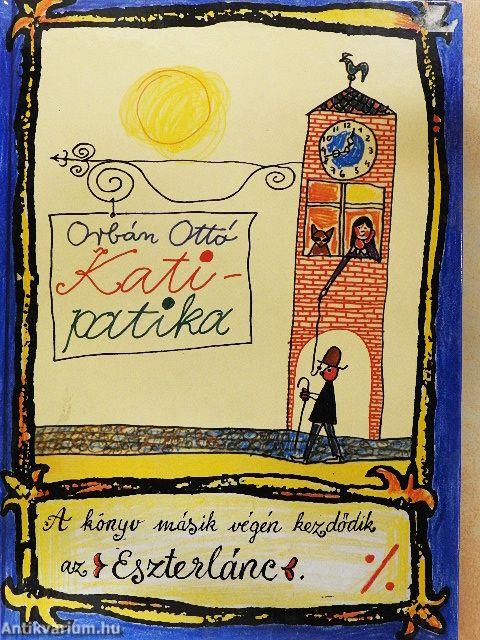 Orbán Ottó
Kati-
patika
A könyv másik végén kezdődik
az Eszterlánc.
Antikvarium.hu